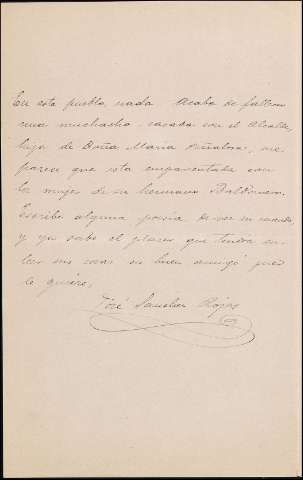 En este pueblo, nada. Acaba de fallecer
una muchacha, casada con el Alcalde,
hija de Doña Maria Peñalva, me
parece que esta emparentada con
la mujer de su hermano Baldomero.
Escriba alguna poesia de vez en cuando
y ya sabe el placer que tendra en
leer sus cosas su buen amigo que
le quiere,
José Sanchez Rojas